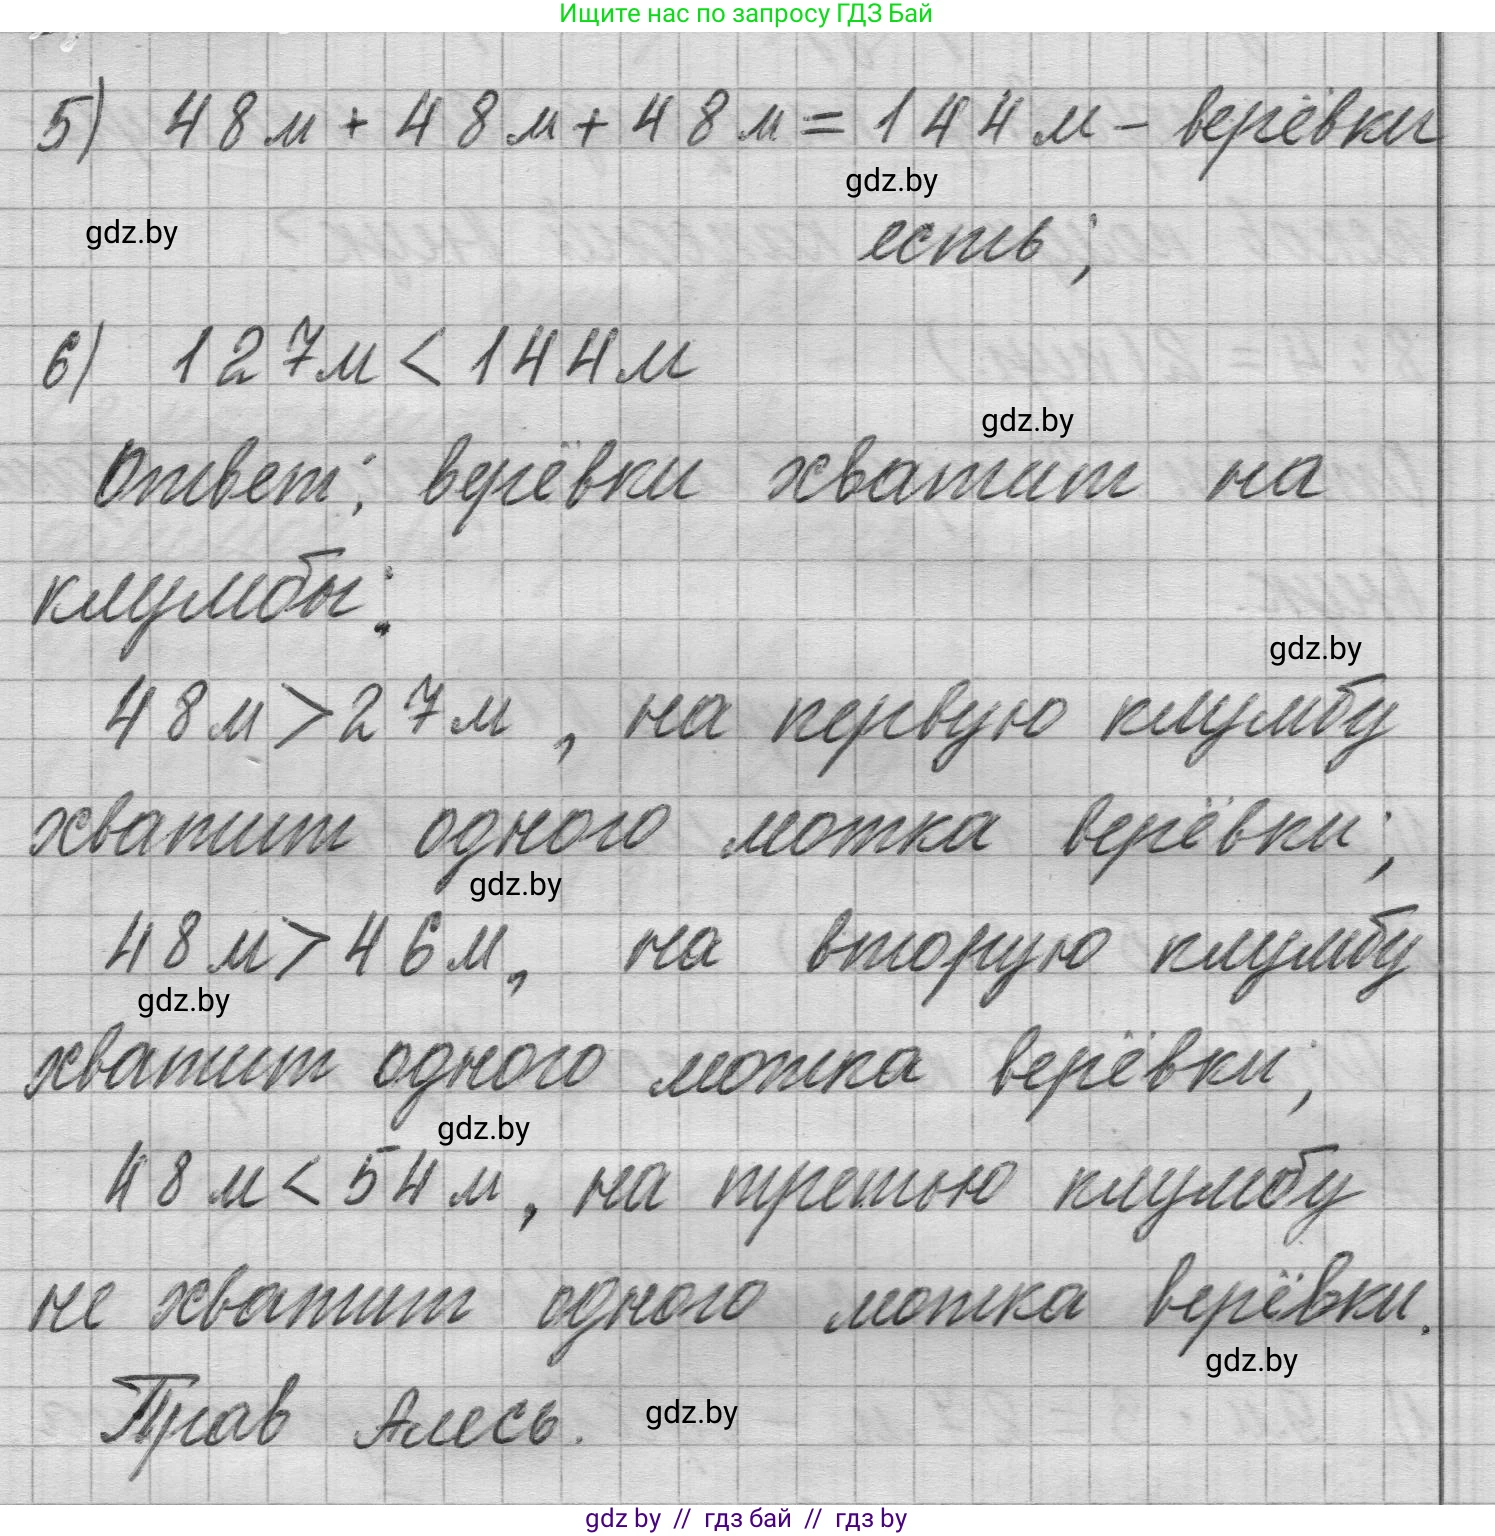 Ищите нас по запросу ГДЗ Бай
5) 48м + 48м + 48м = 144м – верёвки
gdz.by
gdz.by
есть;
6) 127м < 144м
gdz.by
Ответ: верёвки хватит на
клумбы:
gdz.by
48м > 27м, на первую клумбу
хватит одного мотка верёвки;
gdz.by
48м > 46м, на вторую клумбу
gdz.by
хватит одного мотка верёвки;
gdz.by
48м < 54м, на третью клумбу
не хватит одного мотка верёвки.
gdz.by
Прав Алесь.
gdz.by
gdz by // гдз бай // гдз by